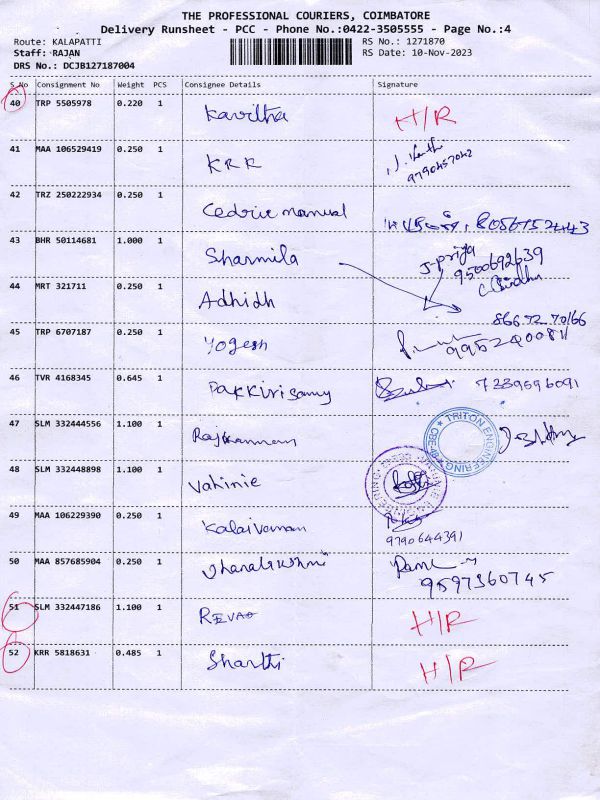 THE PROFESSIONAL COURIERS, COIMBATORE
Delivery Runsheet - PCC - Phone No.:0422-3505555 - Page No.:4
Route: KALAPATTI RS No.: 1271870
Staff: RAJAN RS Date: 10-Nov-2023
DRS No.: DCJB127187004
S.No Consignment No Weight PCS Consignee Details Signature
40 TRP 5505978 0.220 1 Kavitha H/R
41 MAA 106529419 0.250 1 KRR
9790457042
42 TRZ 250222934 0.250 1 Cedric manual 8056752443
43 BHR 50114681 1.000 1 Sharmila J-priya
9500692639
44 MRT 321711 0.250 1 Adhidh
8667270166
45 TRP 6707187 0.250 1 Yogesh 9952400811
46 TVR 4168345 0.645 1 Pakkirisamy 7339596091
47 SLM 332444556 1.100 1 Rajkannan TRITON ENGINEERING
48 SLM 332448898 1.100 1 Vahinie
49 MAA 106229390 0.250 1 Kalaivanan
9790644391
50 MAA 857685904 0.250 1
9597360745
51 SLM 332447186 1.100 1 H/R
52 KRR 5818631 0.485 1 Sharthi H/R